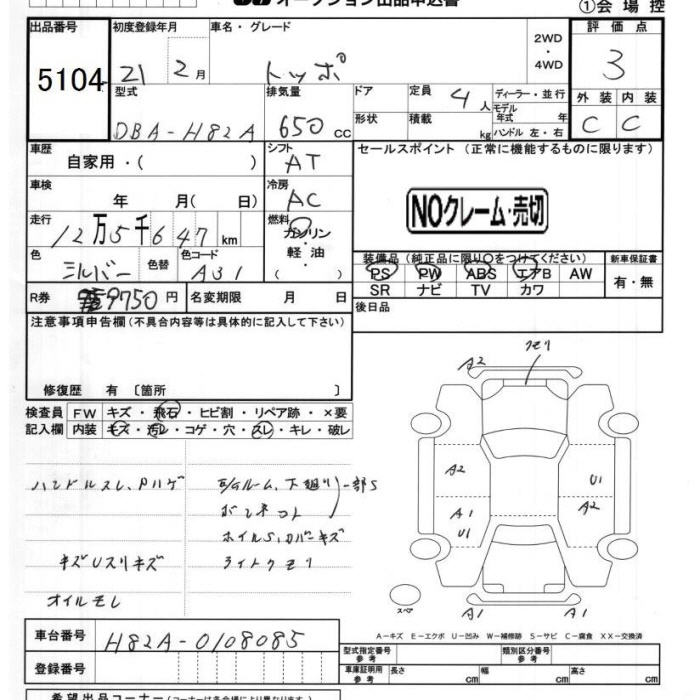 オークション出品申込書
①会場控
出品番号 5104
初度登録年月 21 2月
車名・グレード トッポ
2WD・4WD
評価点 3
型式 DBA-H82A
排気量 650 cc
ドア
形状
定員 4人
積載 kg
ディーラー・並行
モデル年式 年
ハンドル 左・右
外装 C
内装 C
車歴 自家用・( )
シフト AT
セールスポイント(正常に機能するものに限ります)
車検 年 月( 日)
冷房 AC
NOクレーム・売切
走行 12万5千647km
燃料 ガソリン・軽油
色 シルバー
色替
色コード A31
装備品(純正品に限り○をつけてください)
PS PW ABS エアB AW
SR ナビ TV カワ
新車保証書 有・無
R券 9750円
名変期限 月 日
後日品
注意事項申告欄(不具合内容等は具体的に記入して下さい)
修復歴 有〔箇所 〕
検査員記入欄
FW キズ・飛石・ヒビ割・リペア跡・×要
内装 キズ・汚レ・コゲ・穴・スレ・キレ・破レ
ハンドルスレ、Pハゲ
E/Gルーム、下廻リ一部S
ボンネット
ホイルS、カバーキズ
キズUスリキズ
ライトクモリ
オイルモレ
クモリ
A2
A2
U1
A2
A1
U1
A1
A1
スペア
A-キズ E-エクボ U-凹み W-補修跡 S-サビ C-腐食 XX-交換済
車台番号 H82A-0108085
登録番号
型式指定番号 参考
類別区分番号 参考
車庫証明用 参考 長さ cm 幅 cm 高さ cm
希望出品コーナー(コーナーは各会場により異なります)